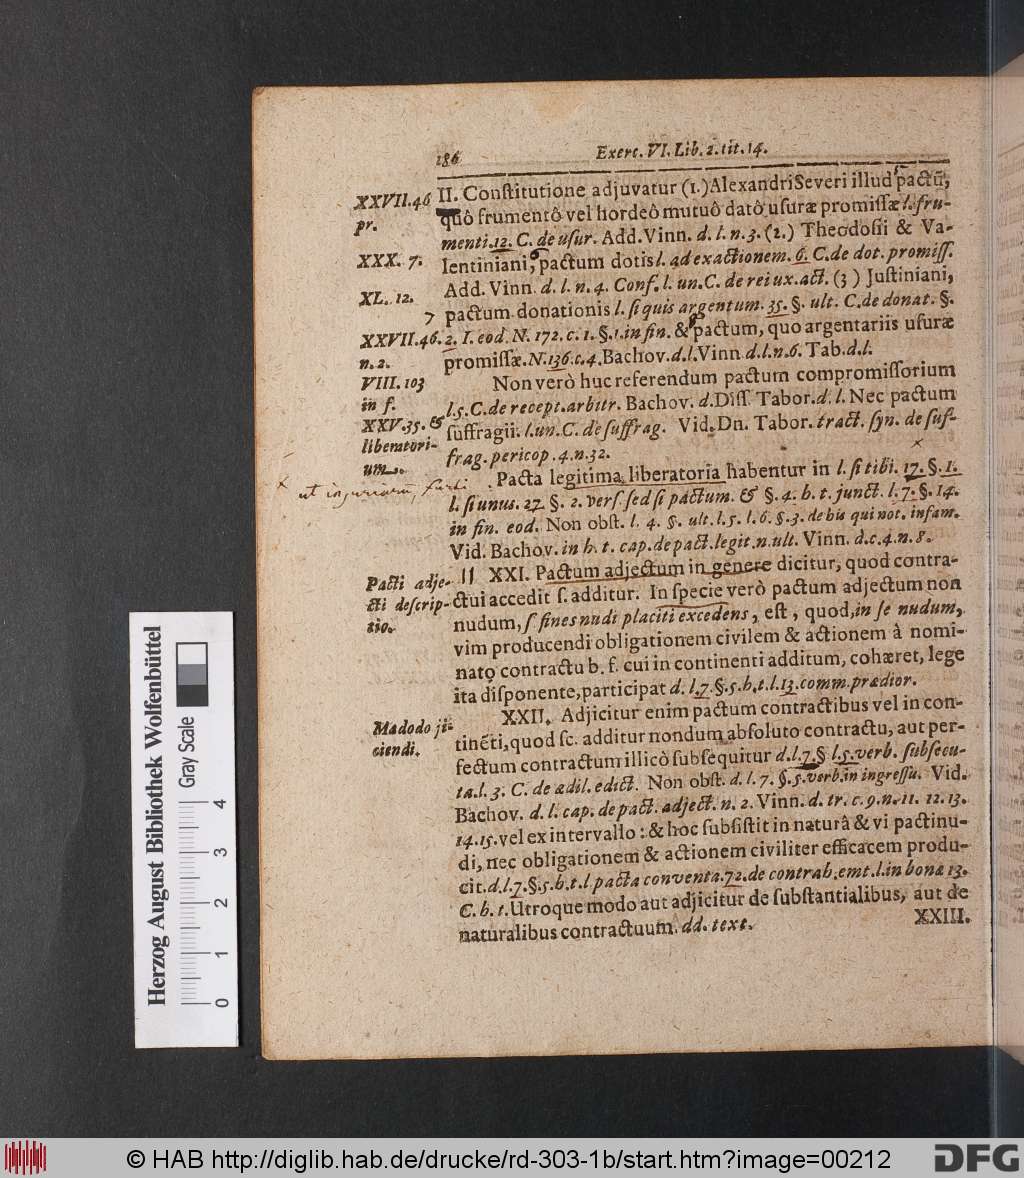 186
Exerc. VI. Lib. 2. tit. 14.
XXVII. 46
pr.
XXX. 7.
XL. 12.
XXVII. 46.
n. 2.
VIII. 103
in f.
XXV. 35. &
liberatori-
um.
II. Conſtitutione adjuvatur (1.) Alexandri Severi illud pactũ,
quô frumentô vel hordeô mutuô datô uſuræ promiſſæ l. fru-
menti. 12. C. de uſur. Add. Vinn. d. l. n. 3. (2.) Theodoſii & Va-
lentiniani, pactum dotis l. ad exactionem. 6. C. de dot. promiſſ.
Add. Vinn. d. l. n. 4. Conf. l. un. C. de rei ux. act. (3) Juſtiniani,
pactum donationis l. ſi quis argentum. 35. §. ult. C. de donat. §.
2. I. eod. N. 172. c. 1. §. 1. in fin. & pactum, quo argentariis uſuræ
promiſſæ. N. 136. c. 4. Bachov. d. l. Vinn. d. l. n. 6. Tab. d. l.
Non verò huc referendum pactum compromiſſorium
l. 5. C. de recept. arbitr. Bachov. d. Diſſ. Tabor. d. l. Nec pactum
ſuffragii. l. un. C. de ſuffrag. Vid. Dn. Tabor. tract. ſyn. de ſuf-
frag. pericop. 4. n. 32.
x
Pacta legitima liberatoria habentur in l. ſi tibi. 17. §. 1.
x ut injuriarũ, furti
l. ſi unus. 27. §. 2. verſ. ſed ſi pactum. & §. 4. h. t. junct. l. 7. §. 14.
in fin. eod. Non obſt. l. 4. §. ult. l. 5. l. 6. §. 3. de his qui not. infam.
Vid. Bachov. in h. t. cap. de pact. legit. n. ult. Vinn. d. c. 4. n. 8.
Pacti adje-
cti deſcrip-
tio.
XXI. Pactum adjectum in genere dicitur, quod contra-
ctui accedit ſ. additur. In ſpecie verò pactum adjectum non
nudum, ſ. fines nudi placiti excedens, eſt, quod, in ſe nudum,
vim producendi obligationem civilem & actionem à nomi-
nato contractu b. f. cui in continenti additum, cohæret, lege
ita diſponente, participat d. l. 7. §. 5. h. t. l. 13. comm. prædior.
Madodo ji-
ciendi.
XXII. Adjicitur enim pactum contractibus vel in con-
tinẽti, quod ſc. additur nondum abſoluto contractu, aut per-
fectum contractum illicò ſubſequitur d. l. 7. § l. 5. verb. ſubſecu-
ta. l. 3. C. de ædil. edict. Non obſt. d. l. 7. §. 5. verb. in ingreſſu. Vid.
Bachov. d. l. cap. de pact. adject. n. 2. Vinn. d. tr. c. 9. n. 11. 12. 13.
14. 15. vel ex intervallo: & hoc ſubſiſtit in naturâ & vi pacti nu-
di, nec obligationem & actionem civiliter efficacem produ-
cit. d. l. 7. §. 5. h. t. l. pacta conventa. 72. de contrah. emt. l. in bonæ 13.
C. h. t. Utroque modo aut adjicitur de ſubſtantialibus, aut de
naturalibus contractuum. dd. text.
XXIII.
Herzog August Bibliothek Wolfenbüttel
Gray Scale
0 1 2 3 4
HAB
© HAB http://diglib.hab.de/drucke/rd-303-1b/start.htm?image=00212
DFG